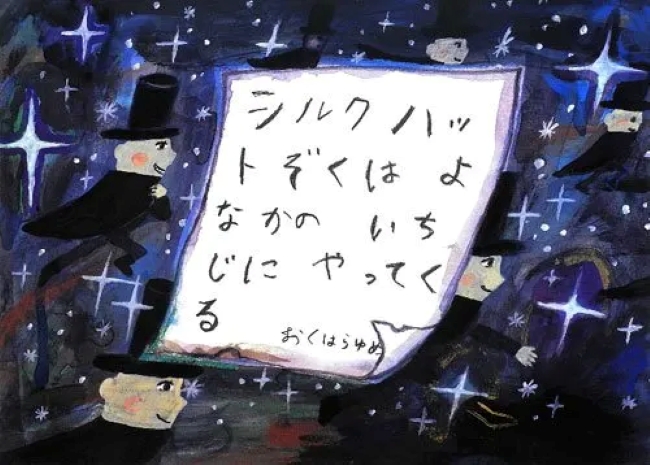 シルク ハッ
ト ぞくは よ
な かの いち
じに やってく
る
おくはらゆめ